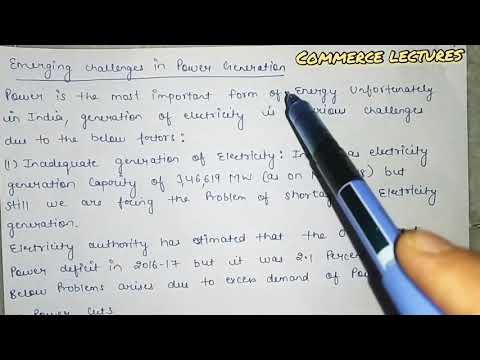 COMMERCE LECTURES
Emerging challenges in Power Generation
Power is the most important form of Energy Unfortunately
in India, generation of electricity is challenges
due to the below factors:
(1) Inadequate generation of Electricity: electricity
generation Capority of 46,619 MW (as on but
still we are facing the Problem of Electricity
generation.
Electricity authority has estimated that the
Power deficit in 2016-17 but it was 2.1
Below Problems arises due to excess demand of
Power Cuts